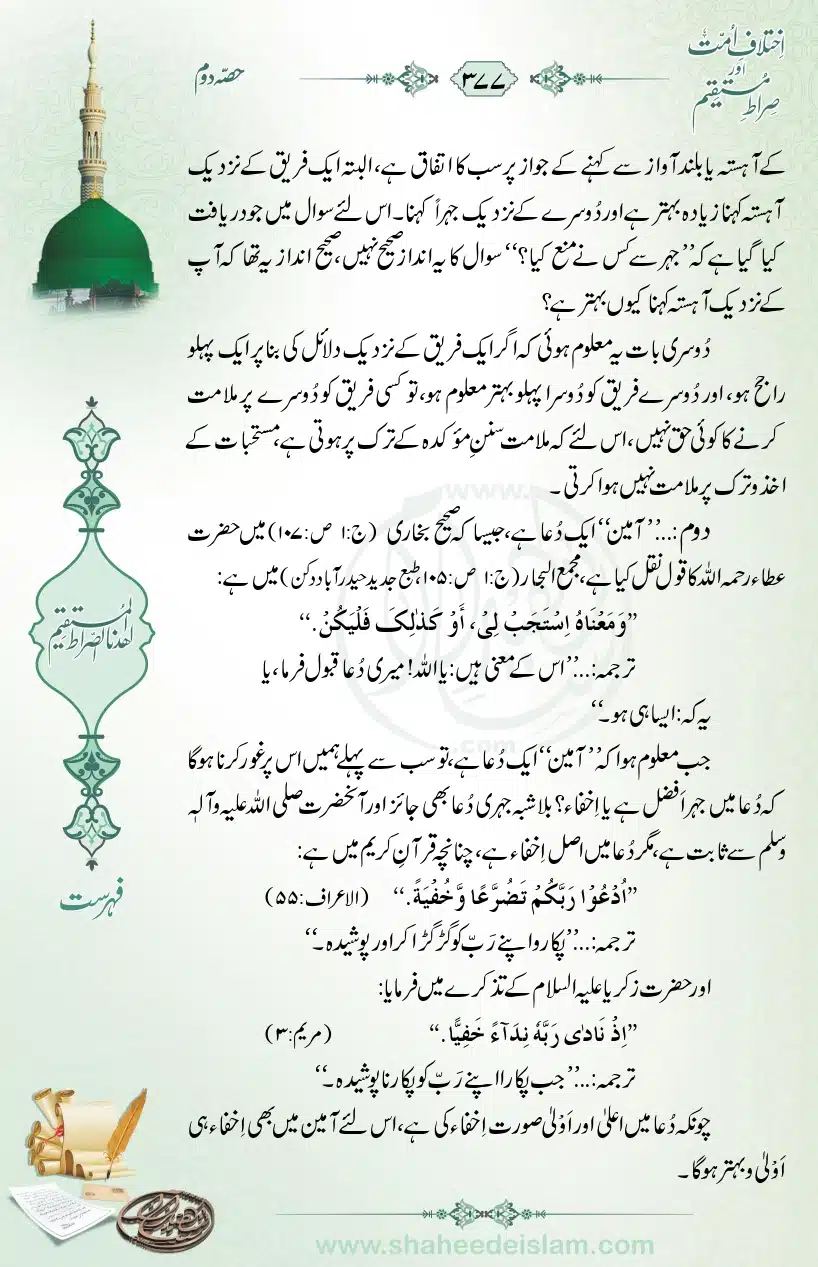 اِختلافِ اُمّت
اور
صِراطِ مُستقیم
۳۷۷
حصّہ دوم
کے آہستہ یا بلند آواز سے کہنے کے جواز پر سب کا اتفاق ہے، البتہ ایک فریق کے نزدیک
آہستہ کہنا زیادہ بہتر ہے اور دُوسرے کے نزدیک جہراً کہنا۔ اس لئے سوال میں جو دریافت
کیا گیا ہے کہ ’’جہر سے کس نے منع کیا؟‘‘ سوال کا یہ انداز صحیح نہیں، صحیح انداز یہ تھا کہ آپ
کے نزدیک آہستہ کہنا کیوں بہتر ہے؟
دُوسری بات یہ معلوم ہوئی کہ اگر ایک فریق کے نزدیک دلائل کی بنا پر ایک پہلو
راجح ہو، اور دُوسرے فریق کو دُوسرا پہلو بہتر معلوم ہو، تو کسی فریق کو دُوسرے پر ملامت
کرنے کا کوئی حق نہیں، اس لئے کہ ملامت سننِ مؤکدہ کے ترک پر ہوتی ہے، مستحبات کے
اخذ و ترک پر ملامت نہیں ہوا کرتی۔
دوم:... ’’آمین‘‘ ایک دُعا ہے، جیسا کہ صحیح بخاری (ج:۱ ص:۱۰۷) میں حضرت
عطاء رحمہ اللہ کا قول نقل کیا ہے، مجمع البحار (ج:۱ ص:۱۰۵ طبع جدید حیدرآباد دکن) میں ہے:
’’وَمَعْنَاهُ اِسْتَجَبْ لِیْ، أَوْ کَذٰلِکَ فَلْیَکُنْ.‘‘
ترجمہ:... ’’اس کے معنی ہیں: یا اللہ! میری دُعا قبول فرما، یا
یہ کہ: ایسا ہی ہو۔‘‘
جب معلوم ہوا کہ ’’آمین‘‘ ایک دُعا ہے، تو سب سے پہلے ہمیں اس پر غور کرنا ہوگا
کہ دُعا میں جہر اَفضل ہے یا اِخفاء؟ بلاشبہ جہری دُعا بھی جائز اور آنحضرت صلی اللہ علیہ وآلہٖ
وسلم سے ثابت ہے، مگر دُعا میں اصل اِخفاء ہے، چنانچہ قرآنِ کریم میں ہے:
’’اُدْعُوْا رَبَّکُمْ تَضَرُّعًا وَّخُفْیَةً.‘‘ (الاعراف:۵۵)
ترجمہ:... ’’پکارو اپنے رَبّ کو گڑگڑا کر اور پوشیدہ۔‘‘
اور حضرت زکریا علیہ السلام کے تذکرے میں فرمایا:
’’اِذْ نَادٰی رَبَّهٗ نِدَآءً خَفِیًّا.‘‘ (مریم:۳)
ترجمہ:... ’’جب پکارا اپنے رَبّ کو پکارنا پوشیدہ۔‘‘
چونکہ دُعا میں اعلیٰ اور اَوْلیٰ صورت اِخفاء کی ہے، اس لئے آمین میں بھی اِخفاء ہی
اَوْلیٰ و بہتر ہوگا۔
اھدنا الصّراط المُستقیم
فہرست
www.shaheedeislam.com